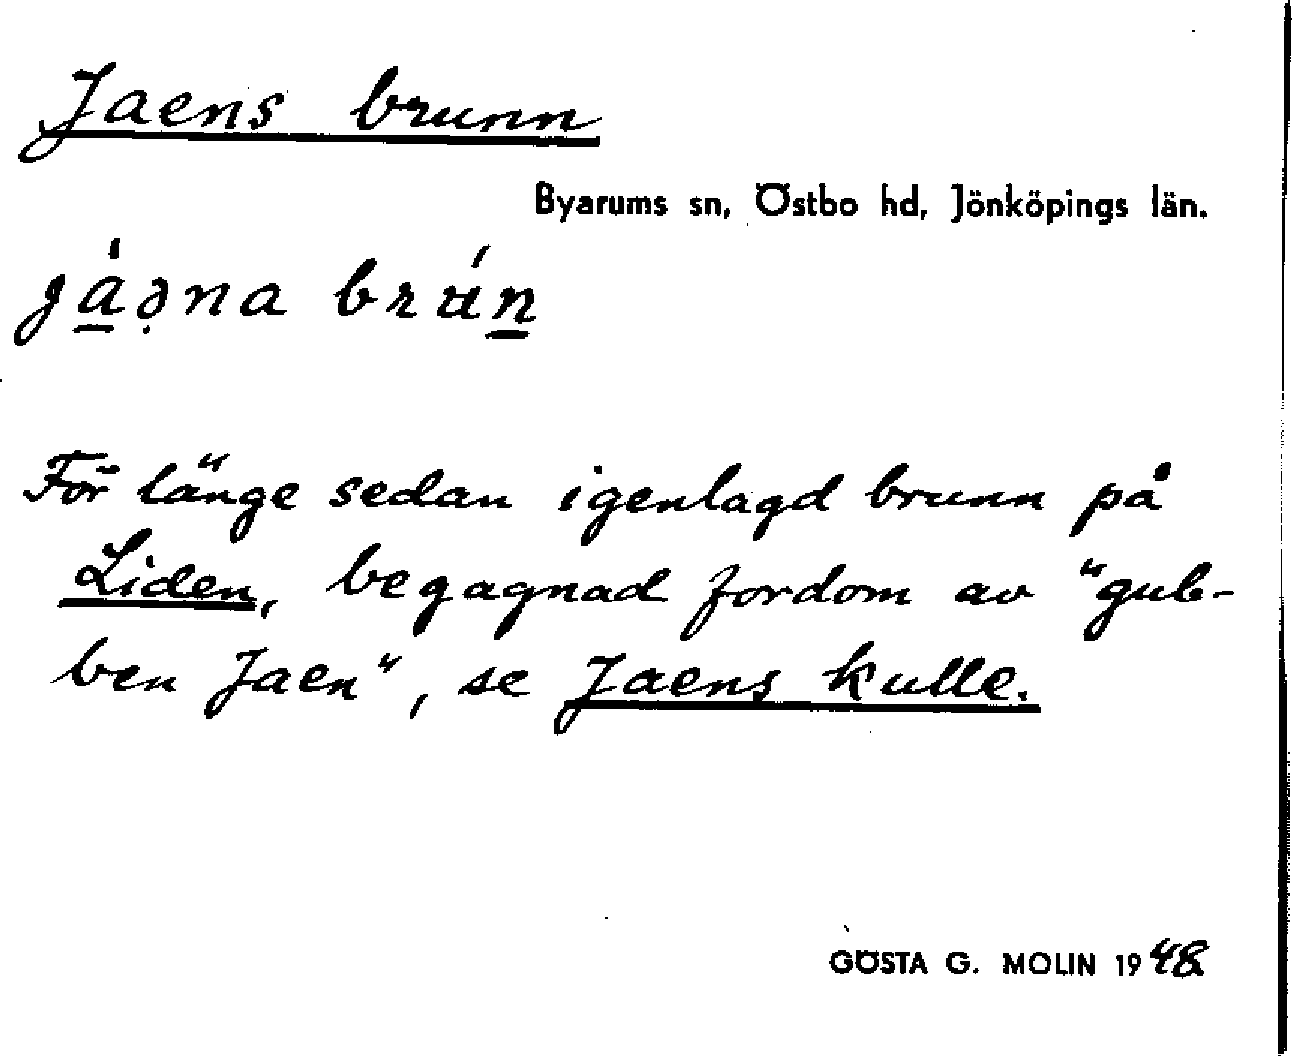 Jaens brunn
Byarums sn, Östbo hd, Jönköpings län.
já̱ə̣na brú̱ṉ
För länge sedan igenlagd brunn på
Liden, begagnad fordom av "gub-
ben Jaen", se Jaens kulle.
GÖSTA G. MOLIN 1948